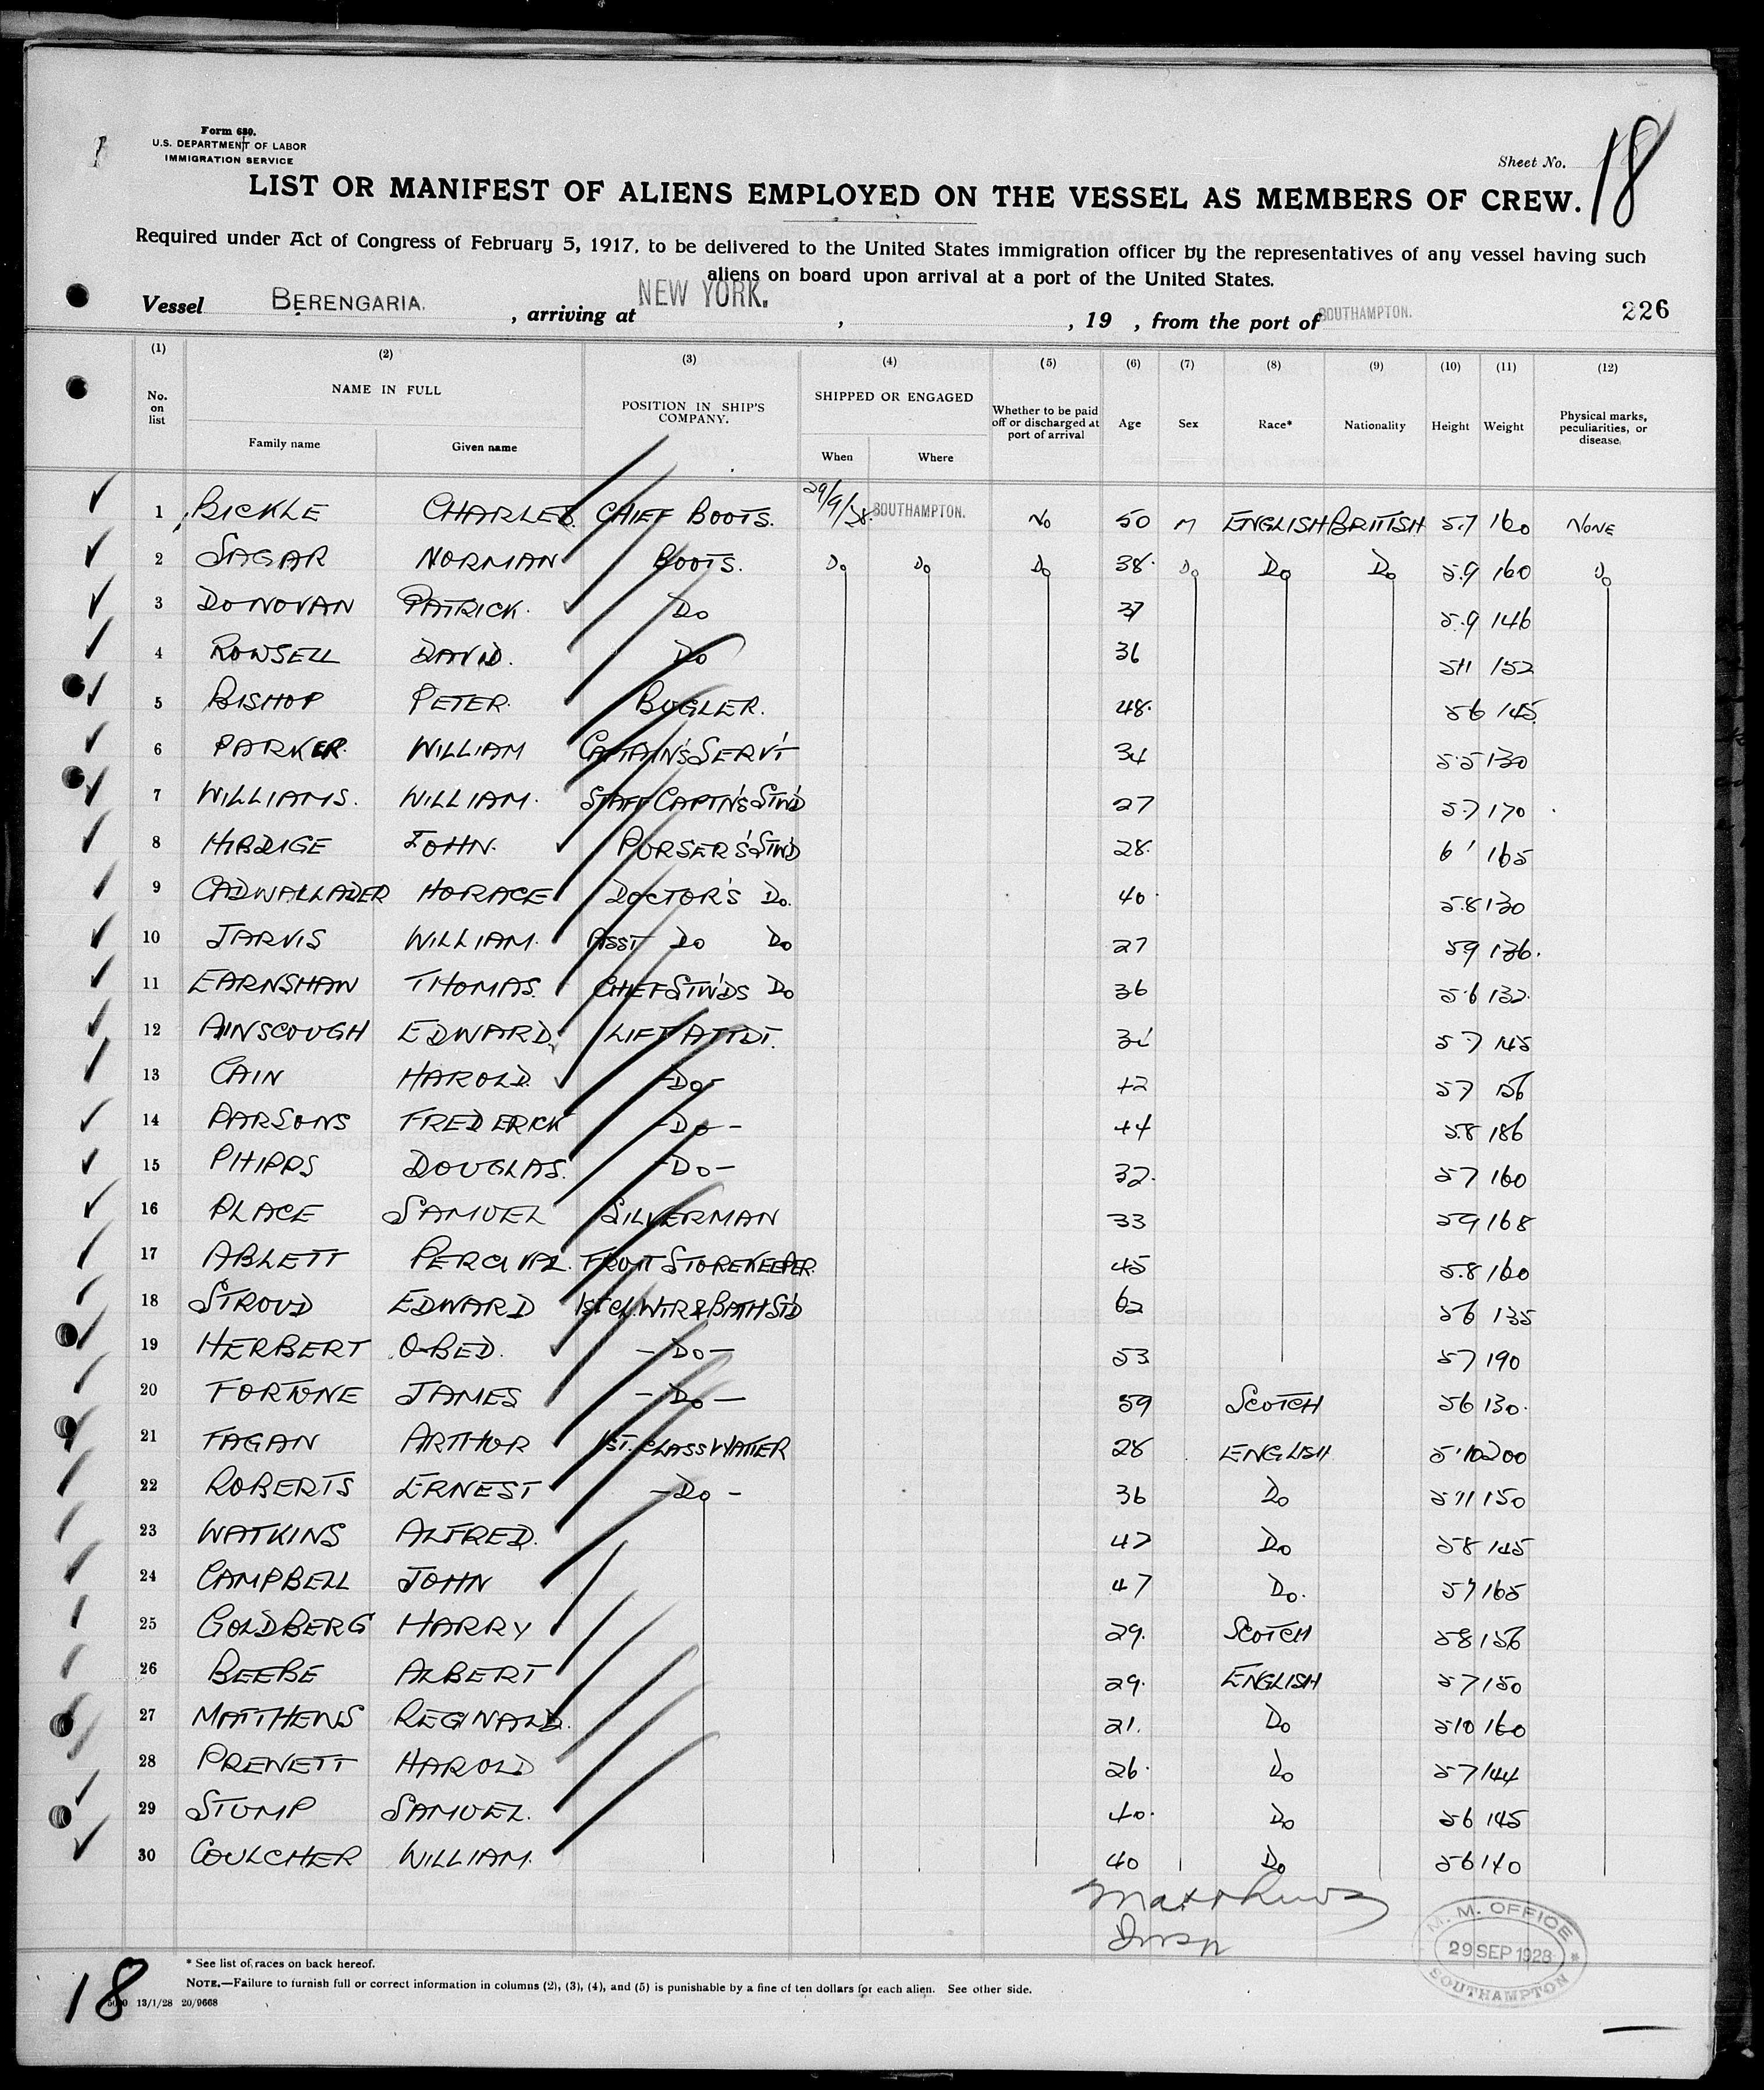 Form 680.
U.S. DEPARTMENT OF LABOR
IMMIGRATION SERVICE
Sheet No. 18
LIST OR MANIFEST OF ALIENS EMPLOYED ON THE VESSEL AS MEMBERS OF CREW.
Required under Act of Congress of February 5, 1917, to be delivered to the United States immigration officer by the representatives of any vessel having such
aliens on board upon arrival at a port of the United States.
Vessel BERENGARIA. , arriving at NEW YORK. , , 19 , from the port of SOUTHAMPTON. 226
(1) (2) (3) (4) (5) (6) (7) (8) (9) (10) (11) (12)
No. on list NAME IN FULL Family name Given name POSITION IN SHIP'S COMPANY. SHIPPED OR ENGAGED When Where Whether to be paid off or discharged at port of arrival Age Sex Race* Nationality Height Weight Physical marks, peculiarities, or disease
1 BICKLE CHARLES. CHIEF BOOTS. 29/9/28. SOUTHAMPTON. No 50 M ENGLISH BRITISH 5.7 160 NONE
2 SAGAR NORMAN BOOTS. Do Do Do 38. Do Do Do 5.9 160 Do
3 DONOVAN PATRICK. Do 37 5.9 146
4 ROWSELL DAVID. Do 36 5'11 152
5 BISHOP PETER. BUGLER. 48. 5 6 145
6 PARKER. WILLIAM CAPTAIN'S SERV'T 34 5.5 130
7 WILLIAMS. WILLIAM. STAFF CAPTN'S STW'D 27 5.7 170
8 HIBDIGE JOHN. PURSER'S STW'D 28. 6' 165
9 CADWALLADER HORACE DOCTOR'S Do. 40. 5.8 130
10 JARVIS WILLIAM. ASST Do Do 27 5 9 136.
11 EARNSHAW THOMAS. CHIEF STW'DS Do 36 5.6 132.
12 AINSCOUGH EDWARD. LIFT ATTDT. 5 7 145
13 CAIN HAROLD. -Do- 42 5 7 156
14 PARSONS FREDERICK -Do- 44 5.8 186
15 PHIPPS DOUGLAS. -Do- 32. 5 7 160
16 PLACE SAMUEL SILVERMAN 33 5 9 168
17 ABLETT PERCIVAL. FRUIT STOREKEEPER. 45 5.8 160
18 STROUD EDWARD 1ST CL. WTR & BATH STD 62 5 6 135
19 HERBERT OBED. -Do- 53 5 7 190
20 FORTUNE JAMES -Do- 59 SCOTCH 5 6 130.
21 FAGAN ARTHUR 1ST. CLASS WAITER 28 ENGLISH 5'10 200
22 ROBERTS ERNEST -Do- 36 Do 5 11 150
23 WATKINS ALFRED. 47 Do 5 8 145
24 CAMPBELL JOHN 47 Do. 5 7 165
25 GOLDBERG HARRY 29. SCOTCH 5 8 156
26 BEEBE ALBERT 29. ENGLISH 5 7 150
27 MATTHEWS REGINALD. 21. Do 5 10 160
28 PREWETT HAROLD 26. Do 5 7 144
29 STUMP SAMUEL. 40. Do 5 6 145
30 COULCHER WILLIAM. 40 Do 5 6 140
Matthews
M. M. OFFICE
29 SEP 1928
SOUTHAMPTON
* See list of races on back hereof.
NOTE.—Failure to furnish full or correct information in columns (2), (3), (4), and (5) is punishable by a fine of ten dollars for each alien. See other side.
18
13/1/28 20/9668